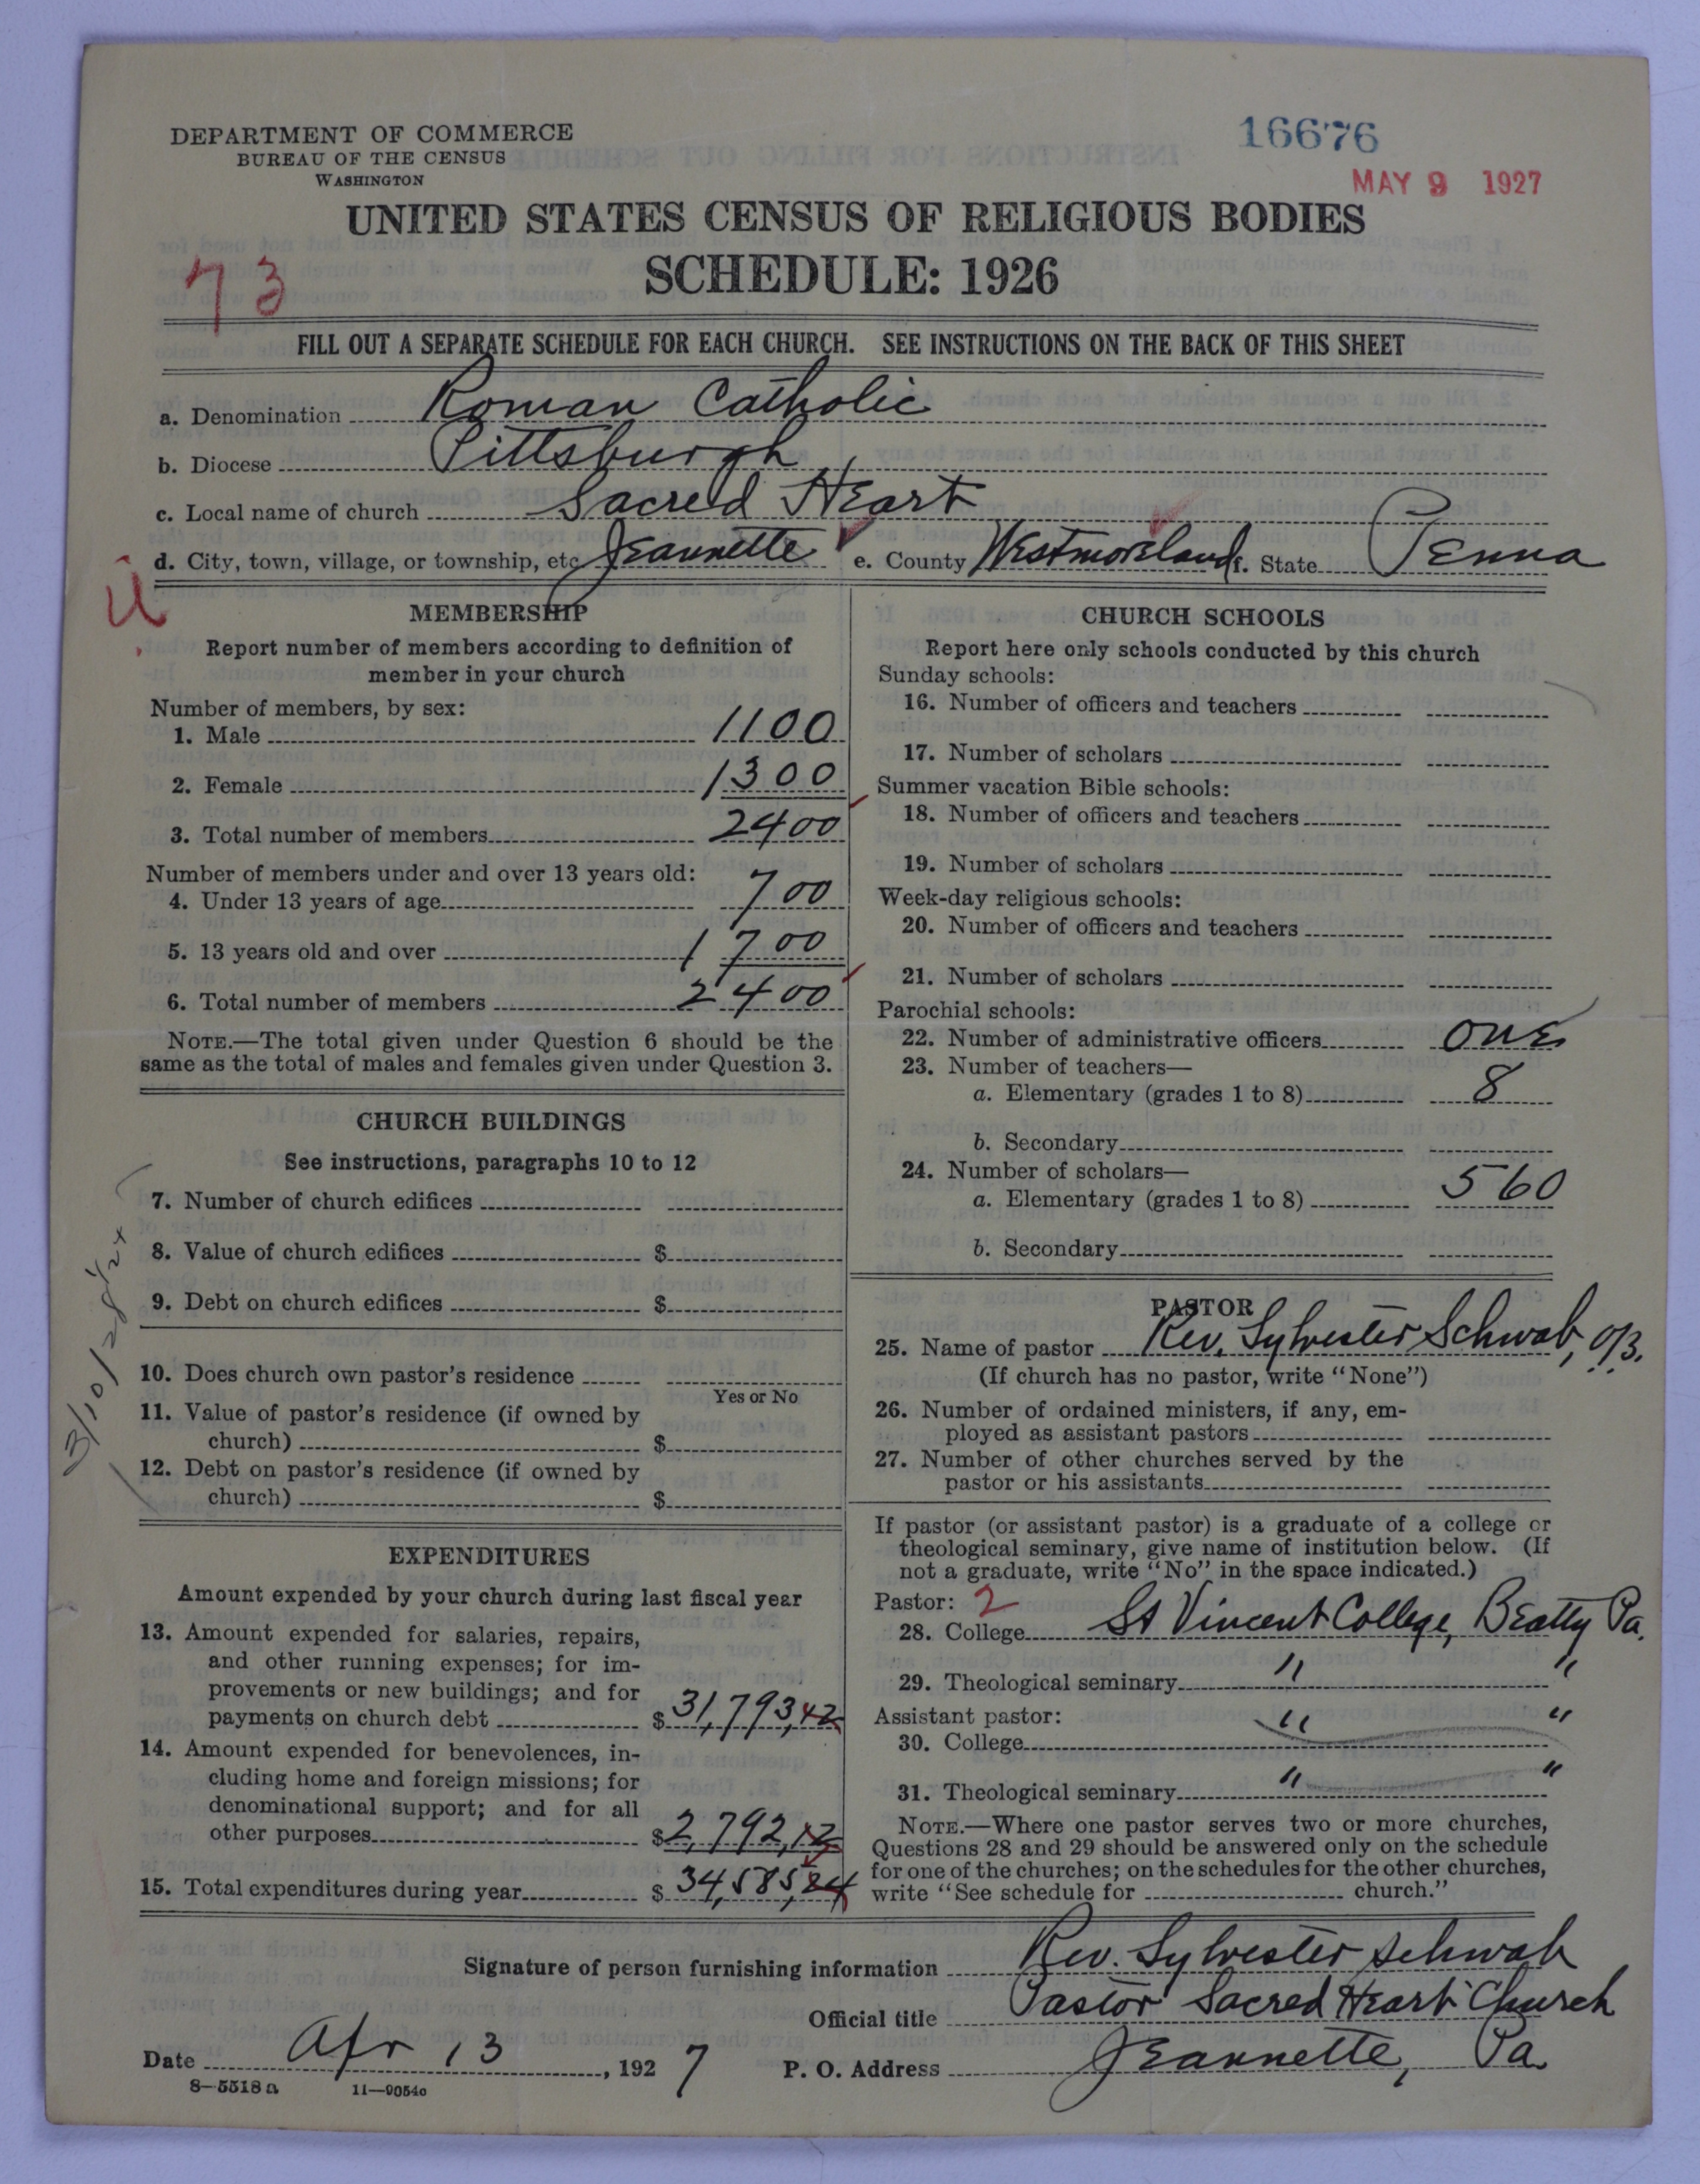 DEPARTMENT OF COMMERCE
BUREAU OF THE CENSUS
WASHINGTON
16676
MAY 9 1927
UNITED STATES CENSUS OF RELIGIOUS BODIES
SCHEDULE: 1926
73
FILL OUT A SEPARATE SCHEDULE FOR EACH CHURCH. SEE INSTRUCTIONS ON THE BACK OF THIS SHEET
a. Denomination Roman Catholic
b. Diocese Pittsburgh
c. Local name of church Sacred Heart
d. City, town, village, or township, etc. Jeannette e. County Westmoreland f. State Penna
MEMBERSHIP
Report number of members according to definition of
member in your church
Number of members, by sex:
1. Male 1100
2. Female 1300
3. Total number of members 2400
Number of members under and over 13 years old:
4. Under 13 years of age 700
5. 13 years old and over 1700
6. Total number of members 2400
NOTE.—The total given under Question 6 should be the
same as the total of males and females given under Question 3.
CHURCH BUILDINGS
See instructions, paragraphs 10 to 12
7. Number of church edifices
8. Value of church edifices $
9. Debt on church edifices $
10. Does church own pastor's residence
Yes or No
11. Value of pastor's residence (if owned by
church) $
12. Debt on pastor's residence (if owned by
church) $
3/10/28
EXPENDITURES
Amount expended by your church during last fiscal year
13. Amount expended for salaries, repairs,
and other running expenses; for im-
provements or new buildings; and for
payments on church debt $31,793,42
14. Amount expended for benevolences, in-
cluding home and foreign missions; for
denominational support; and for all
other purposes $2,792,12
15. Total expenditures during year $34,585,84
CHURCH SCHOOLS
Report here only schools conducted by this church
Sunday schools:
16. Number of officers and teachers
17. Number of scholars
Summer vacation Bible schools:
18. Number of officers and teachers
19. Number of scholars
Week-day religious schools:
20. Number of officers and teachers
21. Number of scholars
Parochial schools:
22. Number of administrative officers one
23. Number of teachers—
a. Elementary (grades 1 to 8) 8
b. Secondary
24. Number of scholars—
a. Elementary (grades 1 to 8) 560
b. Secondary
PASTOR
25. Name of pastor Rev. Sylvester Schwab, O.S.B.
(If church has no pastor, write "None")
26. Number of ordained ministers, if any, em-
ployed as assistant pastors
27. Number of other churches served by the
pastor or his assistants
If pastor (or assistant pastor) is a graduate of a college or
theological seminary, give name of institution below. (If
not a graduate, write "No" in the space indicated.)
Pastor: 2
28. College St Vincent College, Beatty Pa.
29. Theological seminary " "
Assistant pastor:
30. College " "
31. Theological seminary " "
NOTE.—Where one pastor serves two or more churches,
Questions 28 and 29 should be answered only on the schedule
for one of the churches; on the schedules for the other churches,
write "See schedule for church."
Signature of person furnishing information Rev. Sylvester Schwab
Official title Pastor Sacred Heart Church
Date Apr 13, 1927 P. O. Address Jeannette, Pa.
8—5518 a 11—9054c